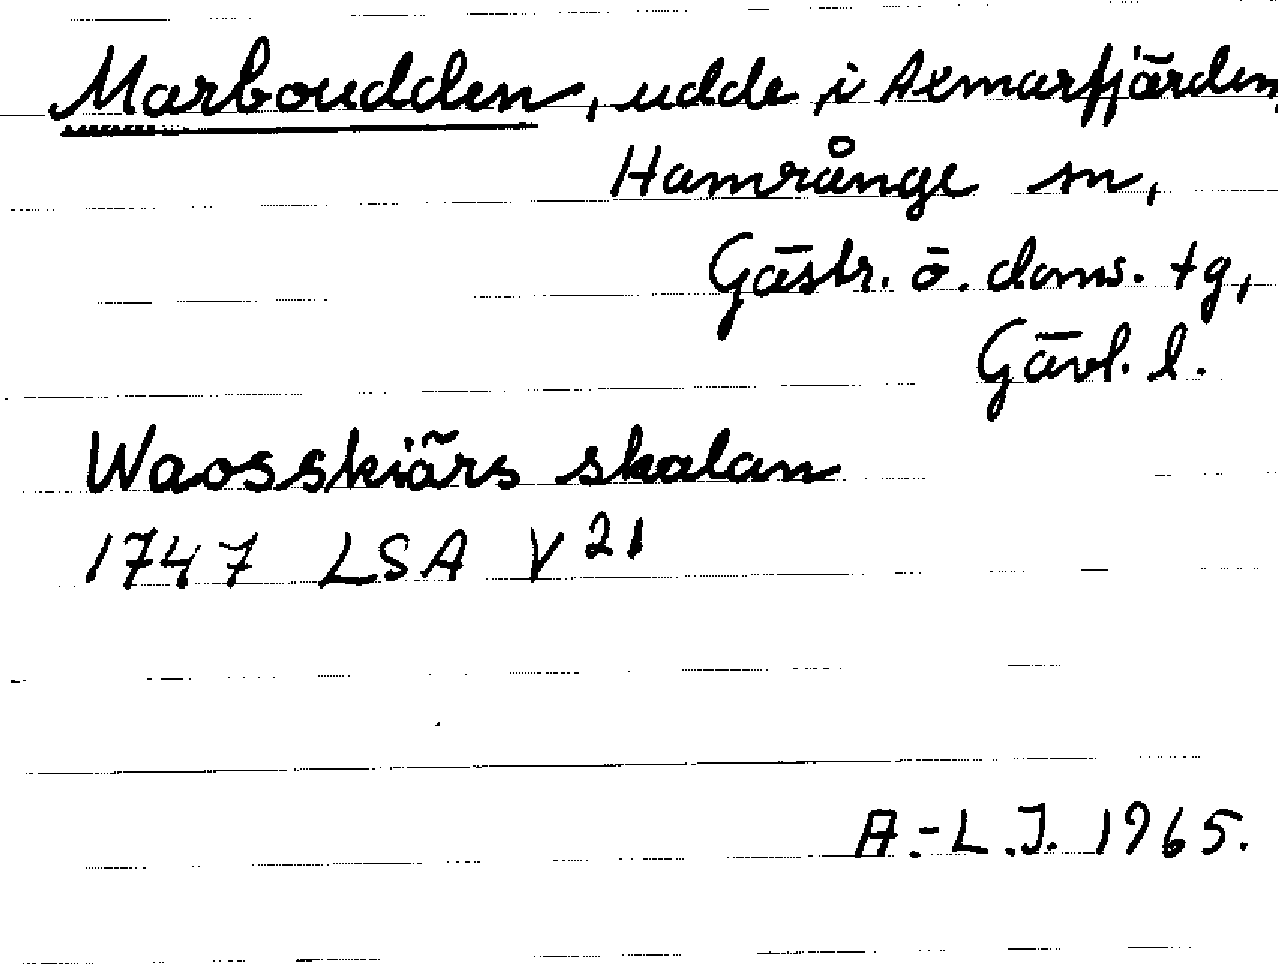 Marboudden, udde i Axmarfjärden,
Hamrånge sn,
Gästr. ö. doms. tg,
Gävl. l.
Waosskiärs skalan
1747 LSA V 21
A.-L.J. 1965.